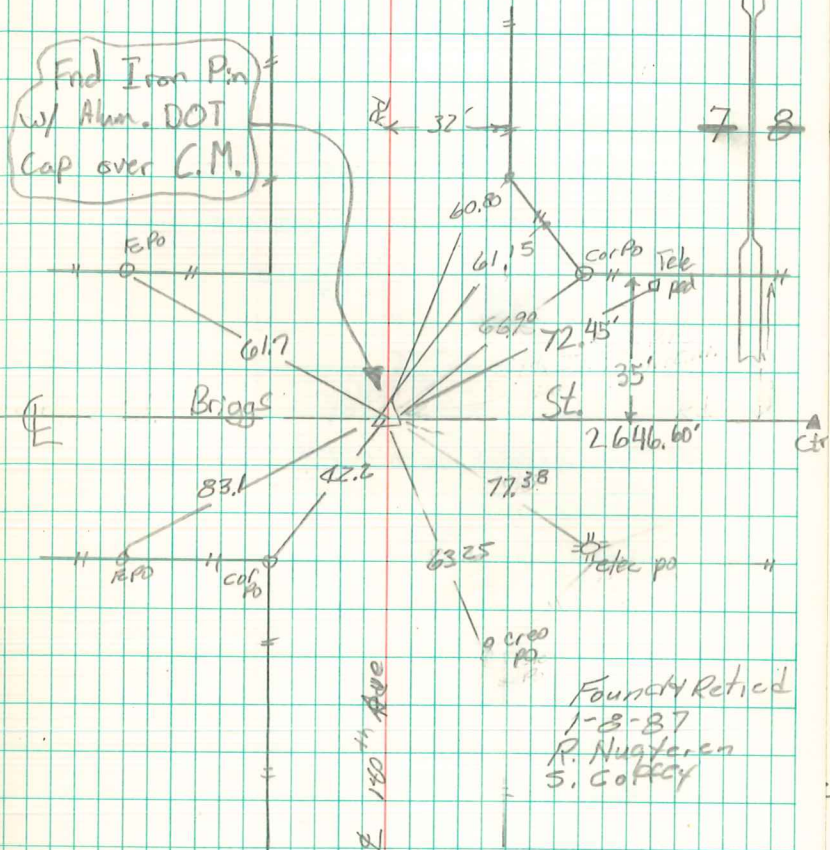 Fnd Iron Pin
w/ Alum. DOT
Cap over C.M.
32'
7 8
60.80
61.15
Cor Po
Tele
ped
Fe Po
66.90
72.45'
61.7
35'
Briggs St.
2646.60'
Ctr
83.1
42.2
77.38
63.25
Fe Po
Cor
Po
elec po
creo
po
℄ 180th Ave
Found & Retied
1-8-87
R. Nugteren
S. Coffey